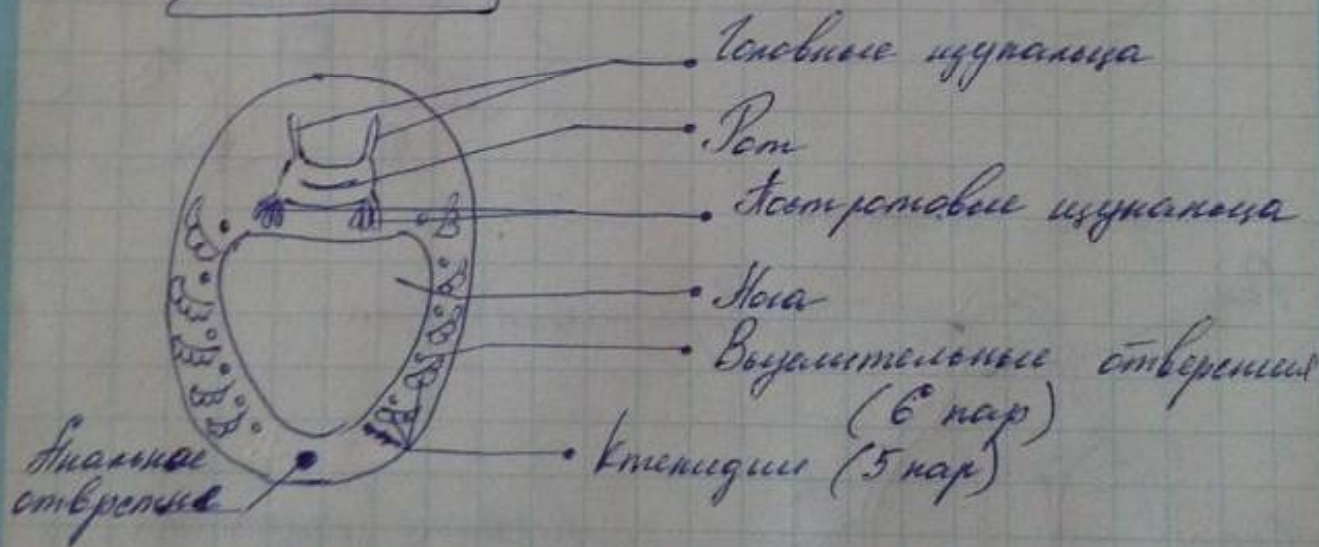 Головные щупальца
Рот
Постротовые щупальца
Нога
Выделительные отверстия
(6 пар)
Ктенидии (5 пар)
Анальное
отврстие